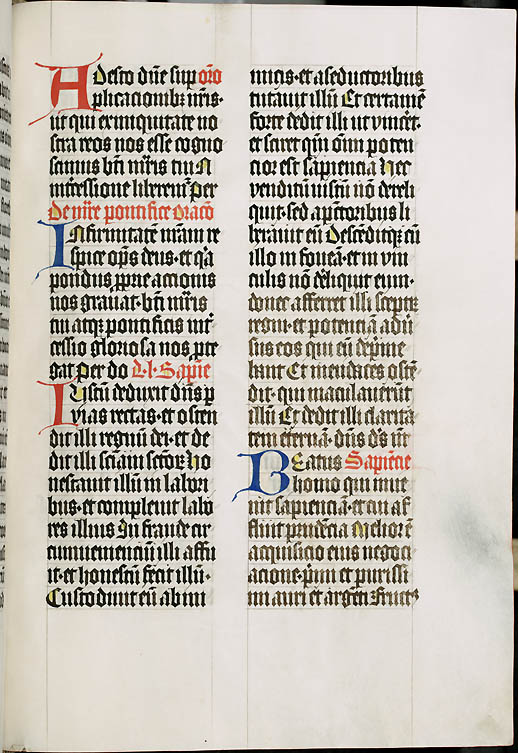 Adesto dn̄e sup or̄o
plicacionibꝫ nr̄is·
ut qui ex iniquitate no
stra reos nos esse cogno
scimus bt̄i mr̄is tui N
int̄cessione liberem̄ Per
De mr̄e pontifice oraco̅
Infirmitatē nr̄am re
spice op̄s deus· et q̄a
pondus ꝓprie accionis
nos grauat· bt̄i mr̄is
tui atqꝫ pontificis int̄
cessio gloriosa nos pte
gat Per do L· l· Sapiē
Iustū deduxit dn̄s p
vias rectas· et osten
dit illi regnū dei· et de
dit illi sciam sctoꝝ Ho
nestauit illū in labori
bus· et compleuit labo
res illius In fraude cir
cumueniencīu illi affu
it· et honestū fecit illū·
Custodiuit eū ab ini
micis· et a seductoribus
tutauit illū Et certamē
forte dedit illi ut vincēt·
et sciret qm̄ om̄i poten
cior est sapiencia Hec
venditū iustū nō dereli
quit· sed a pctoribus li
berauit eū Descēditqꝫ cū
illo in fouēa· et in vin
culis nō dēliquit eum·
donec afferret illi sceptꝝ
regni· et potenciā adū
sus eos qui eū dep̄me
bant Et mendaces ostē
dit· qui maculauerūt
illū Et dedit illi claritā
tem eternā· dn̄s ds̄ nr̄
Beatus Sapiēcie
homo qui inue
nit sapienciā· et cui af
fluit prudēcia Melior ē
acquisicio eius negoci
acione· p̄mi et purissi
mi auri et argēti Fruct9